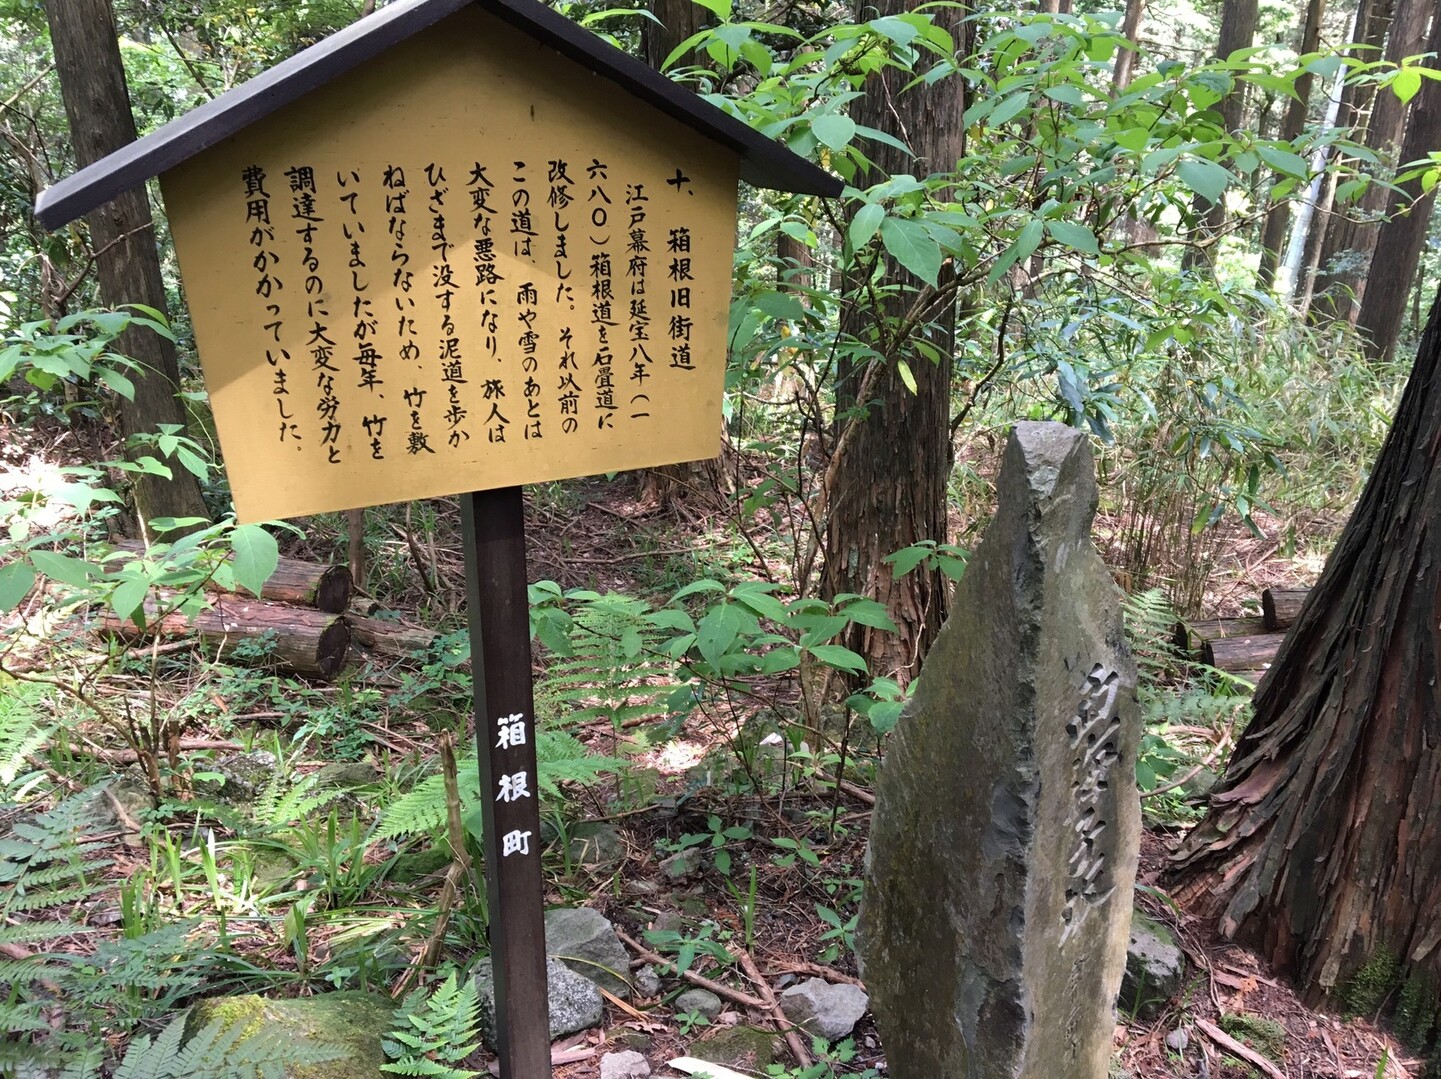 十、箱根旧街道
江戸幕府は延宝八年(一
六八〇)箱根道を石畳道に
改修しました。それ以前の
この道は、雨や雪のあとは
大変な悪路になり、旅人は
ひざまで没する泥道を歩か
ねばならないため、竹を敷
いていましたが毎年、竹を
調達するのに大変な労力と
費用がかかっていました。
箱根町